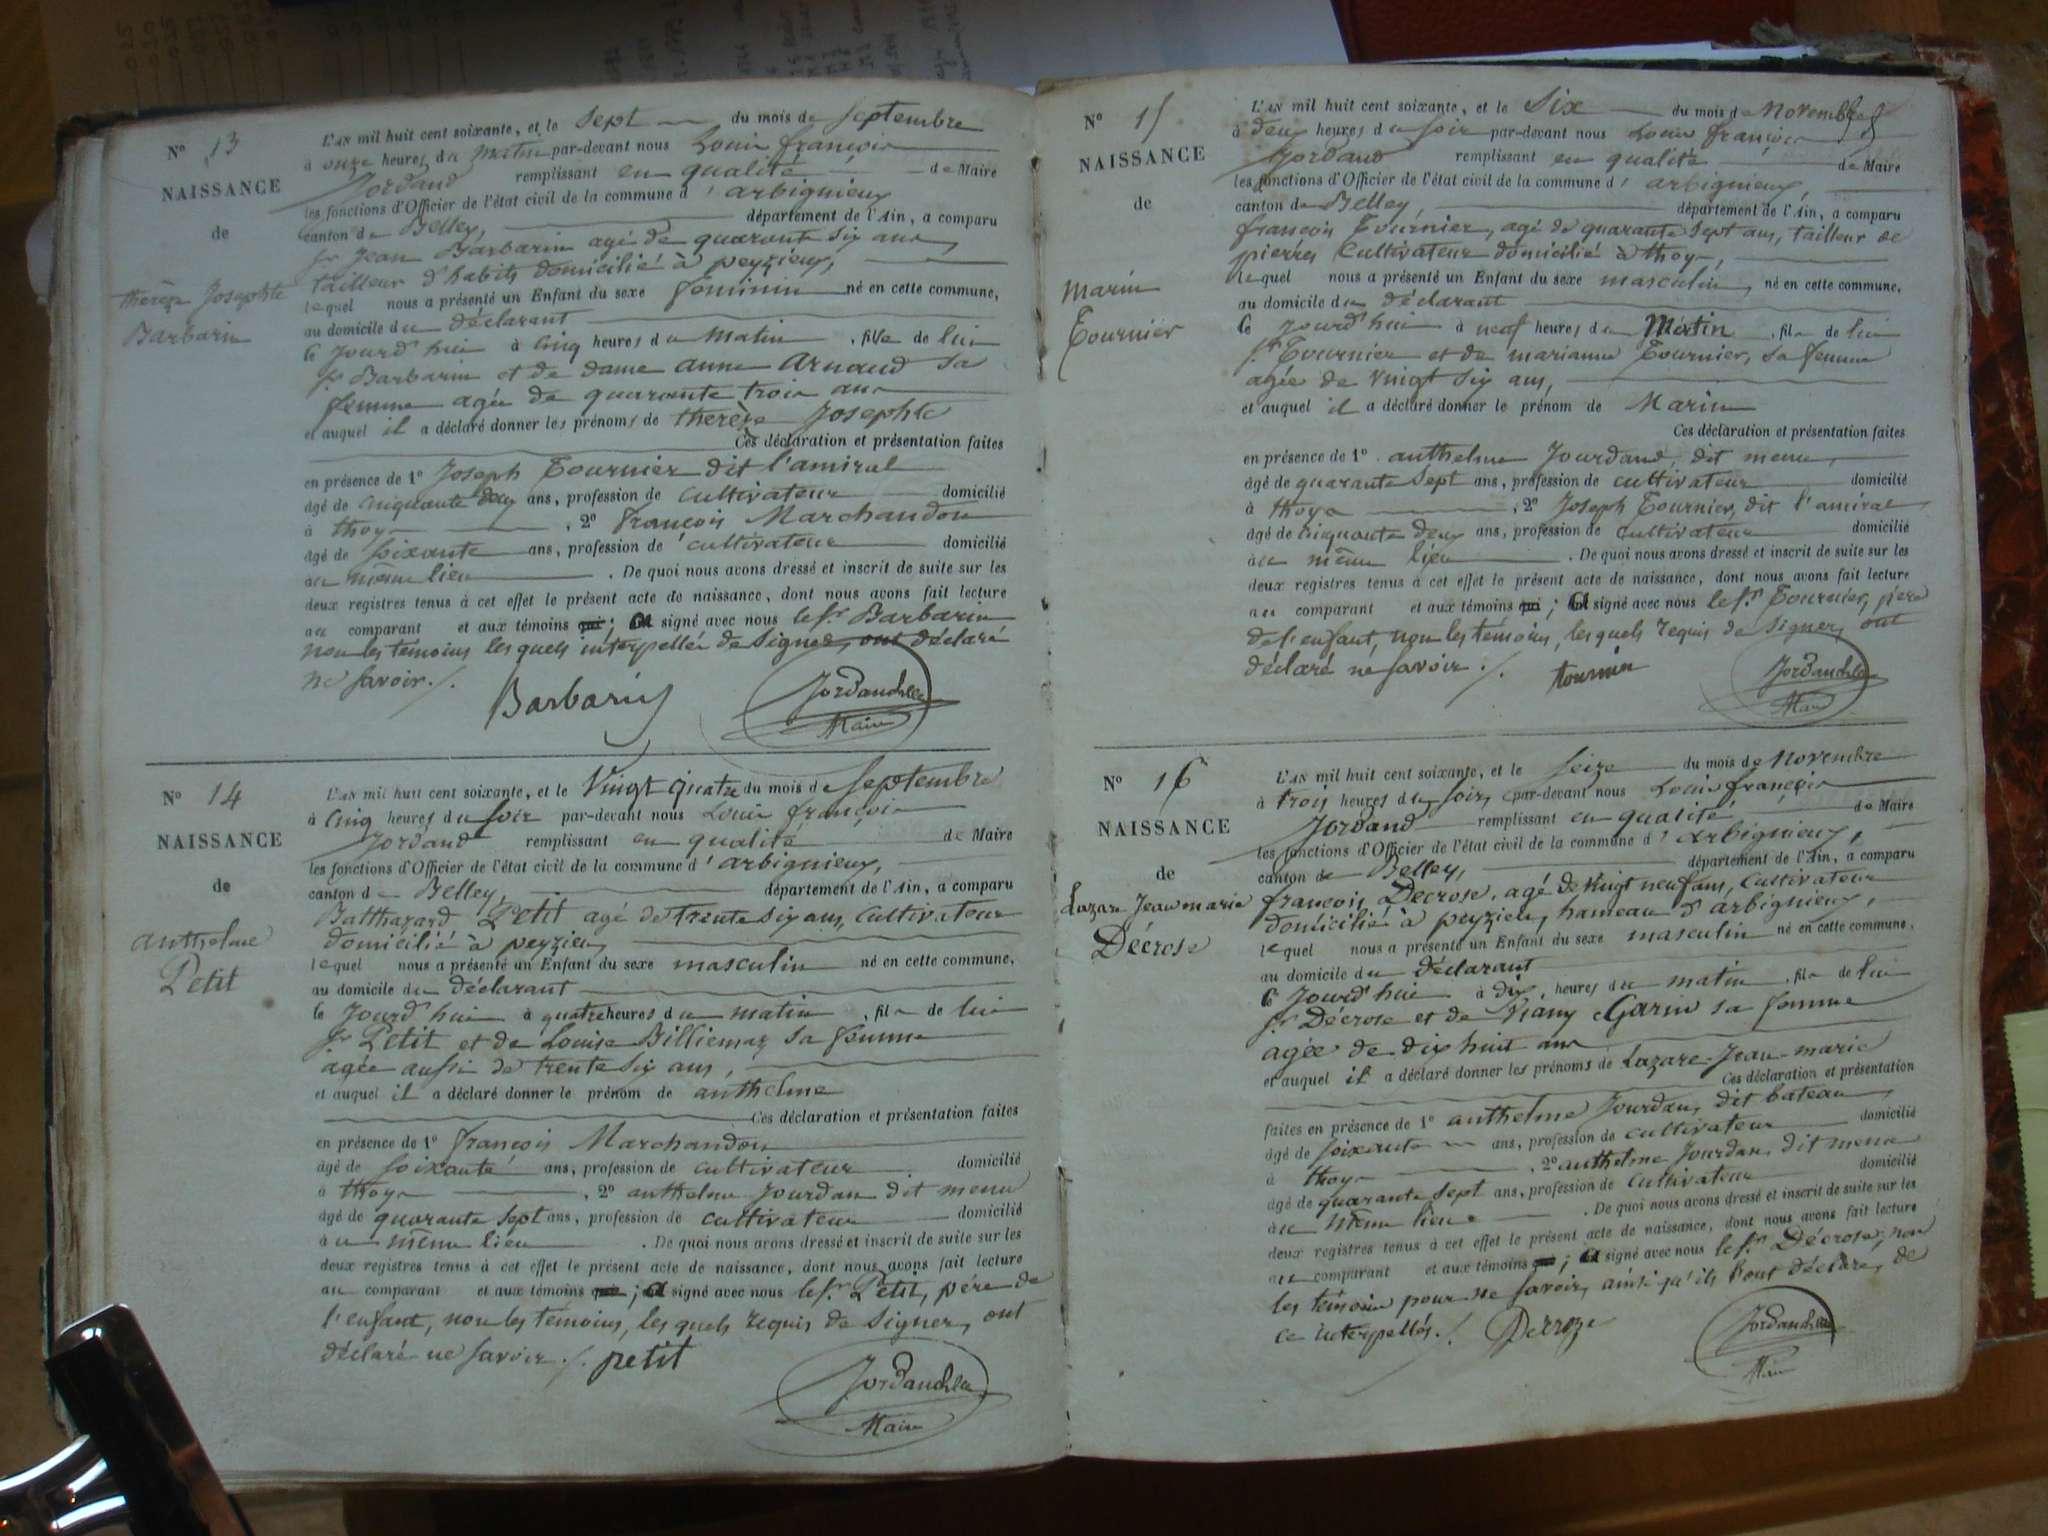 N° 13
NAISSANCE
de
thérèze Josephte
Barbarin
L'AN mil huit cent soixante, et le sept du mois de septembre
à onze heures du matin par-devant nous Louis françois
Jordand remplissant en qualité de Maire
les fonctions d'Officier de l'état civil de la commune d'arbignieux
canton de Belley, département de l'Ain, a comparu
sr Jean Barbarin agé de quarante six ans,
tailleur d'habits domicilié à peyzieux,
lequel nous a présenté un Enfant du sexe feminin né en cette commune,
au domicile du déclarant
ce jourd'hui à cinq heures du matin, fille de lui
sr Barbarin et de dame anne arnaud sa
femme agée de quarante trois ans
et auquel il a déclaré donner les prénoms de therèze Josephte
Ces déclaration et présentation faites
en présence de 1° Joseph Tournier dit l'amiral
âgé de cinquante deux ans, profession de cultivateur domicilié
à thoys, 2° françois Marchandon
âgé de soixante ans, profession de cultivateur domicilié
au même lieu. De quoi nous avons dressé et inscrit de suite sur les
deux registres tenus à cet effet le présent acte de naissance, dont nous avons fait lecture
au comparant et aux témoins qui; et signé avec nous le sr Barbarin
non les témoins les quels interpellés de signer, ont déclaré
ne savoir./.
Barbarin
Jordand
Maire
N° 14
NAISSANCE
de
anthelme
Petit
L'AN mil huit cent soixante, et le Vingt quatre du mois de septembre
à cinq heures du soir par-devant nous Louis françois
Jordand remplissant en qualité de Maire
les fonctions d'Officier de l'état civil de la commune d'arbignieux,
canton de Belley, département de l'Ain, a comparu
Balthazard Petit agé de trente six ans, cultivateur
domicilié à peyzieu
lequel nous a présenté un Enfant du sexe masculin né en cette commune,
au domicile du déclarant
ce jourd'hui à quatre heures du matin, fils de lui
sr Petit et de Louise Billiemaz sa femme
agée aussi de trente six ans,
et auquel il a déclaré donner le prénom de anthelme
Ces déclaration et présentation faites
en présence de 1° françois Marchandon
âgé de soixante ans, profession de cultivateur domicilié
à thoys, 2° anthelme Jourdan dit menu
âgé de quarante sept ans, profession de cultivateur domicilié
au même lieu. De quoi nous avons dressé et inscrit de suite sur les
deux registres tenus à cet effet le présent acte de naissance, dont nous avons fait lecture
au comparant et aux témoins qui; et signé avec nous le sr Petit, père de
l'enfant, non les témoins, les quels requis de signer, ont
déclaré ne savoir./. petit
Jordand
Maire
N° 15
NAISSANCE
de
Marin
Tournier
L'AN mil huit cent soixante, et le six du mois de Novembre
à deux heures du soir par-devant nous Louis françois
Jordand remplissant en qualité de Maire
les fonctions d'Officier de l'état civil de la commune d'arbignieux,
canton de Belley, département de l'Ain, a comparu
françois Tournier, agé de quarante sept ans, tailleur de
pierres cultivateur domicilié à thoys,
lequel nous a présenté un Enfant du sexe masculin, né en cette commune,
au domicile du déclarant
ce jourd'hui à neuf heures du Matin, fils de lui
sr Tournier et de marianne Tournier, sa femme
agée de vingt six ans,
et auquel il a déclaré donner le prénom de Marin
Ces déclaration et présentation faites
en présence de 1° anthelme Jourdand, dit menu,
âgé de quarante sept ans, profession de cultivateur domicilié
à thoys, 2° Joseph Tournier, dit l'amiral
âgé de cinquante deux ans, profession de cultivateur domicilié
au même lieu. De quoi nous avons dressé et inscrit de suite sur les
deux registres tenus à cet effet le présent acte de naissance, dont nous avons fait lecture
au comparant et aux témoins qui; et signé avec nous le sr Tournier, père
de l'enfant, non les témoins, les quels requis de signer, ont
déclaré ne savoir./. tournier
Jordand
Maire
N° 16
NAISSANCE
de
Lazare Jean marie
Décrose
L'AN mil huit cent soixante, et le seize du mois de Novembre
à trois heures du soir, par-devant nous Louis françois
Jordand remplissant en qualité de Maire
les fonctions d'Officier de l'état civil de la commune d'arbignieux,
canton de Belley, département de l'Ain, a comparu
françois Decrose, agé de vingt neuf ans, cultivateur
domicilié à peyzieu, hameau d'arbignieux,
lequel nous a présenté un Enfant du sexe masculin né en cette commune,
au domicile du déclarant
ce jourd'hui à dix heures du matin, fils de lui
sr Décrose et de Garin sa femme
agée de dix huit ans
et auquel il a déclaré donner les prénoms de Lazare-Jean-marie
Ces déclaration et présentation
faites en présence de 1° anthelme Jourdan, dit bateau,
âgé de soixante ans, profession de cultivateur domicilié
à thoys, 2° anthelme Jourdan dit menu
âgé de quarante sept ans, profession de cultivateur domicilié
au même lieu. De quoi nous avons dressé et inscrit de suite sur les
deux registres tenus à cet effet le présent acte de naissance, dont nous avons fait lecture
au comparant et aux témoins qui; et signé avec nous le sr Décrose, non
les témoins pour ne savoir, ainsi qu'ils l'ont déclaré, de
ce interpellés./. Decroze
Jordand
Maire